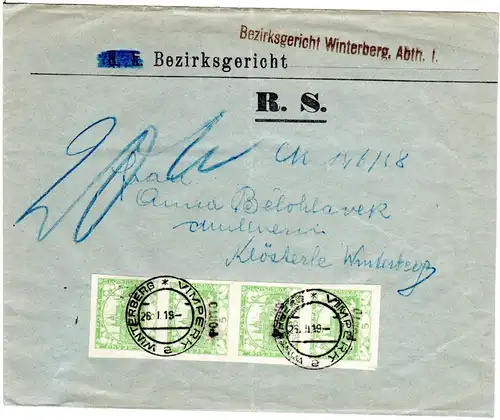 Bezirksgericht Winterberg, Abth. I.
k. k. Bezirksgericht
R. S.
Frau
Anna Bělohlavek
Klösterle Winterberg
WINTERBERG * VIMPERK a 26.II.19-
WINTERBERG * VIMPERK a 26.II.19-